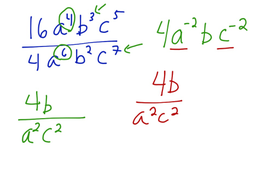 16a⁴b³c⁵
4a⁶b²c⁷
4a⁻²bc⁻²
4b
a²c²
4b
a²c²